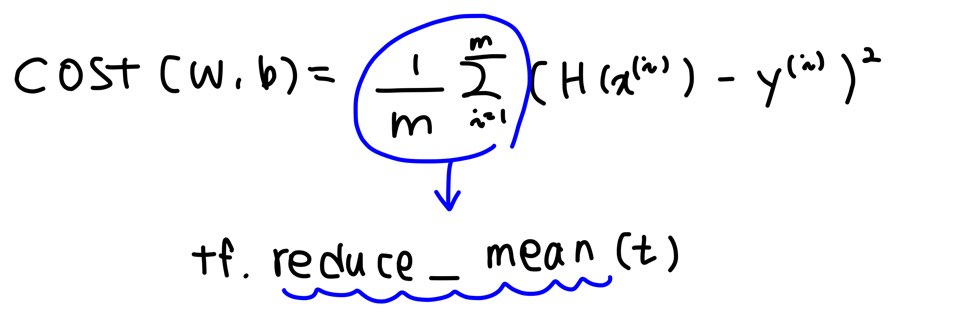 COST (W, b) = 1/m Σ_{i=1}^{m} (H(x^{(i)}) - y^{(i)})^2
tf. reduce_mean(t)